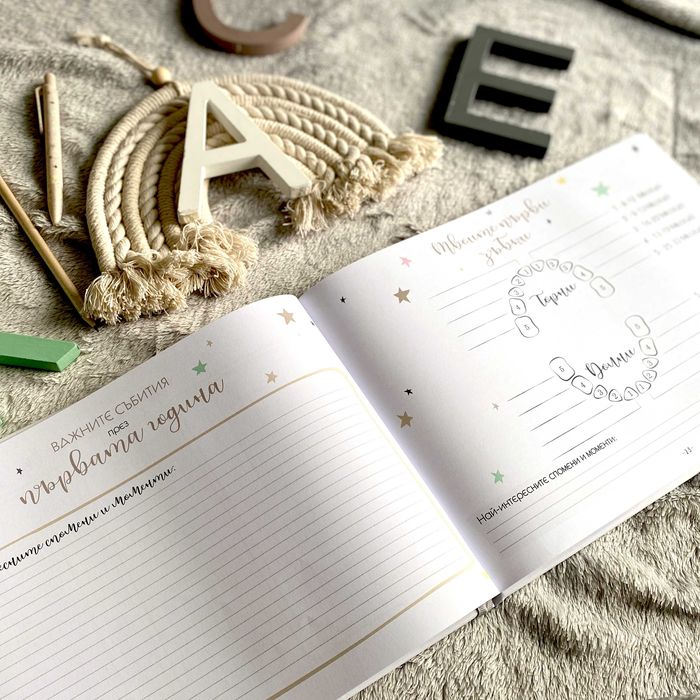 C
A
E
ВАЖНИТЕ СЪБИТИЯ
през
първата година
спомени и моменти:
Твоите първи
зъбчета
Горни
Долни
Най-интересните спомени и моменти: